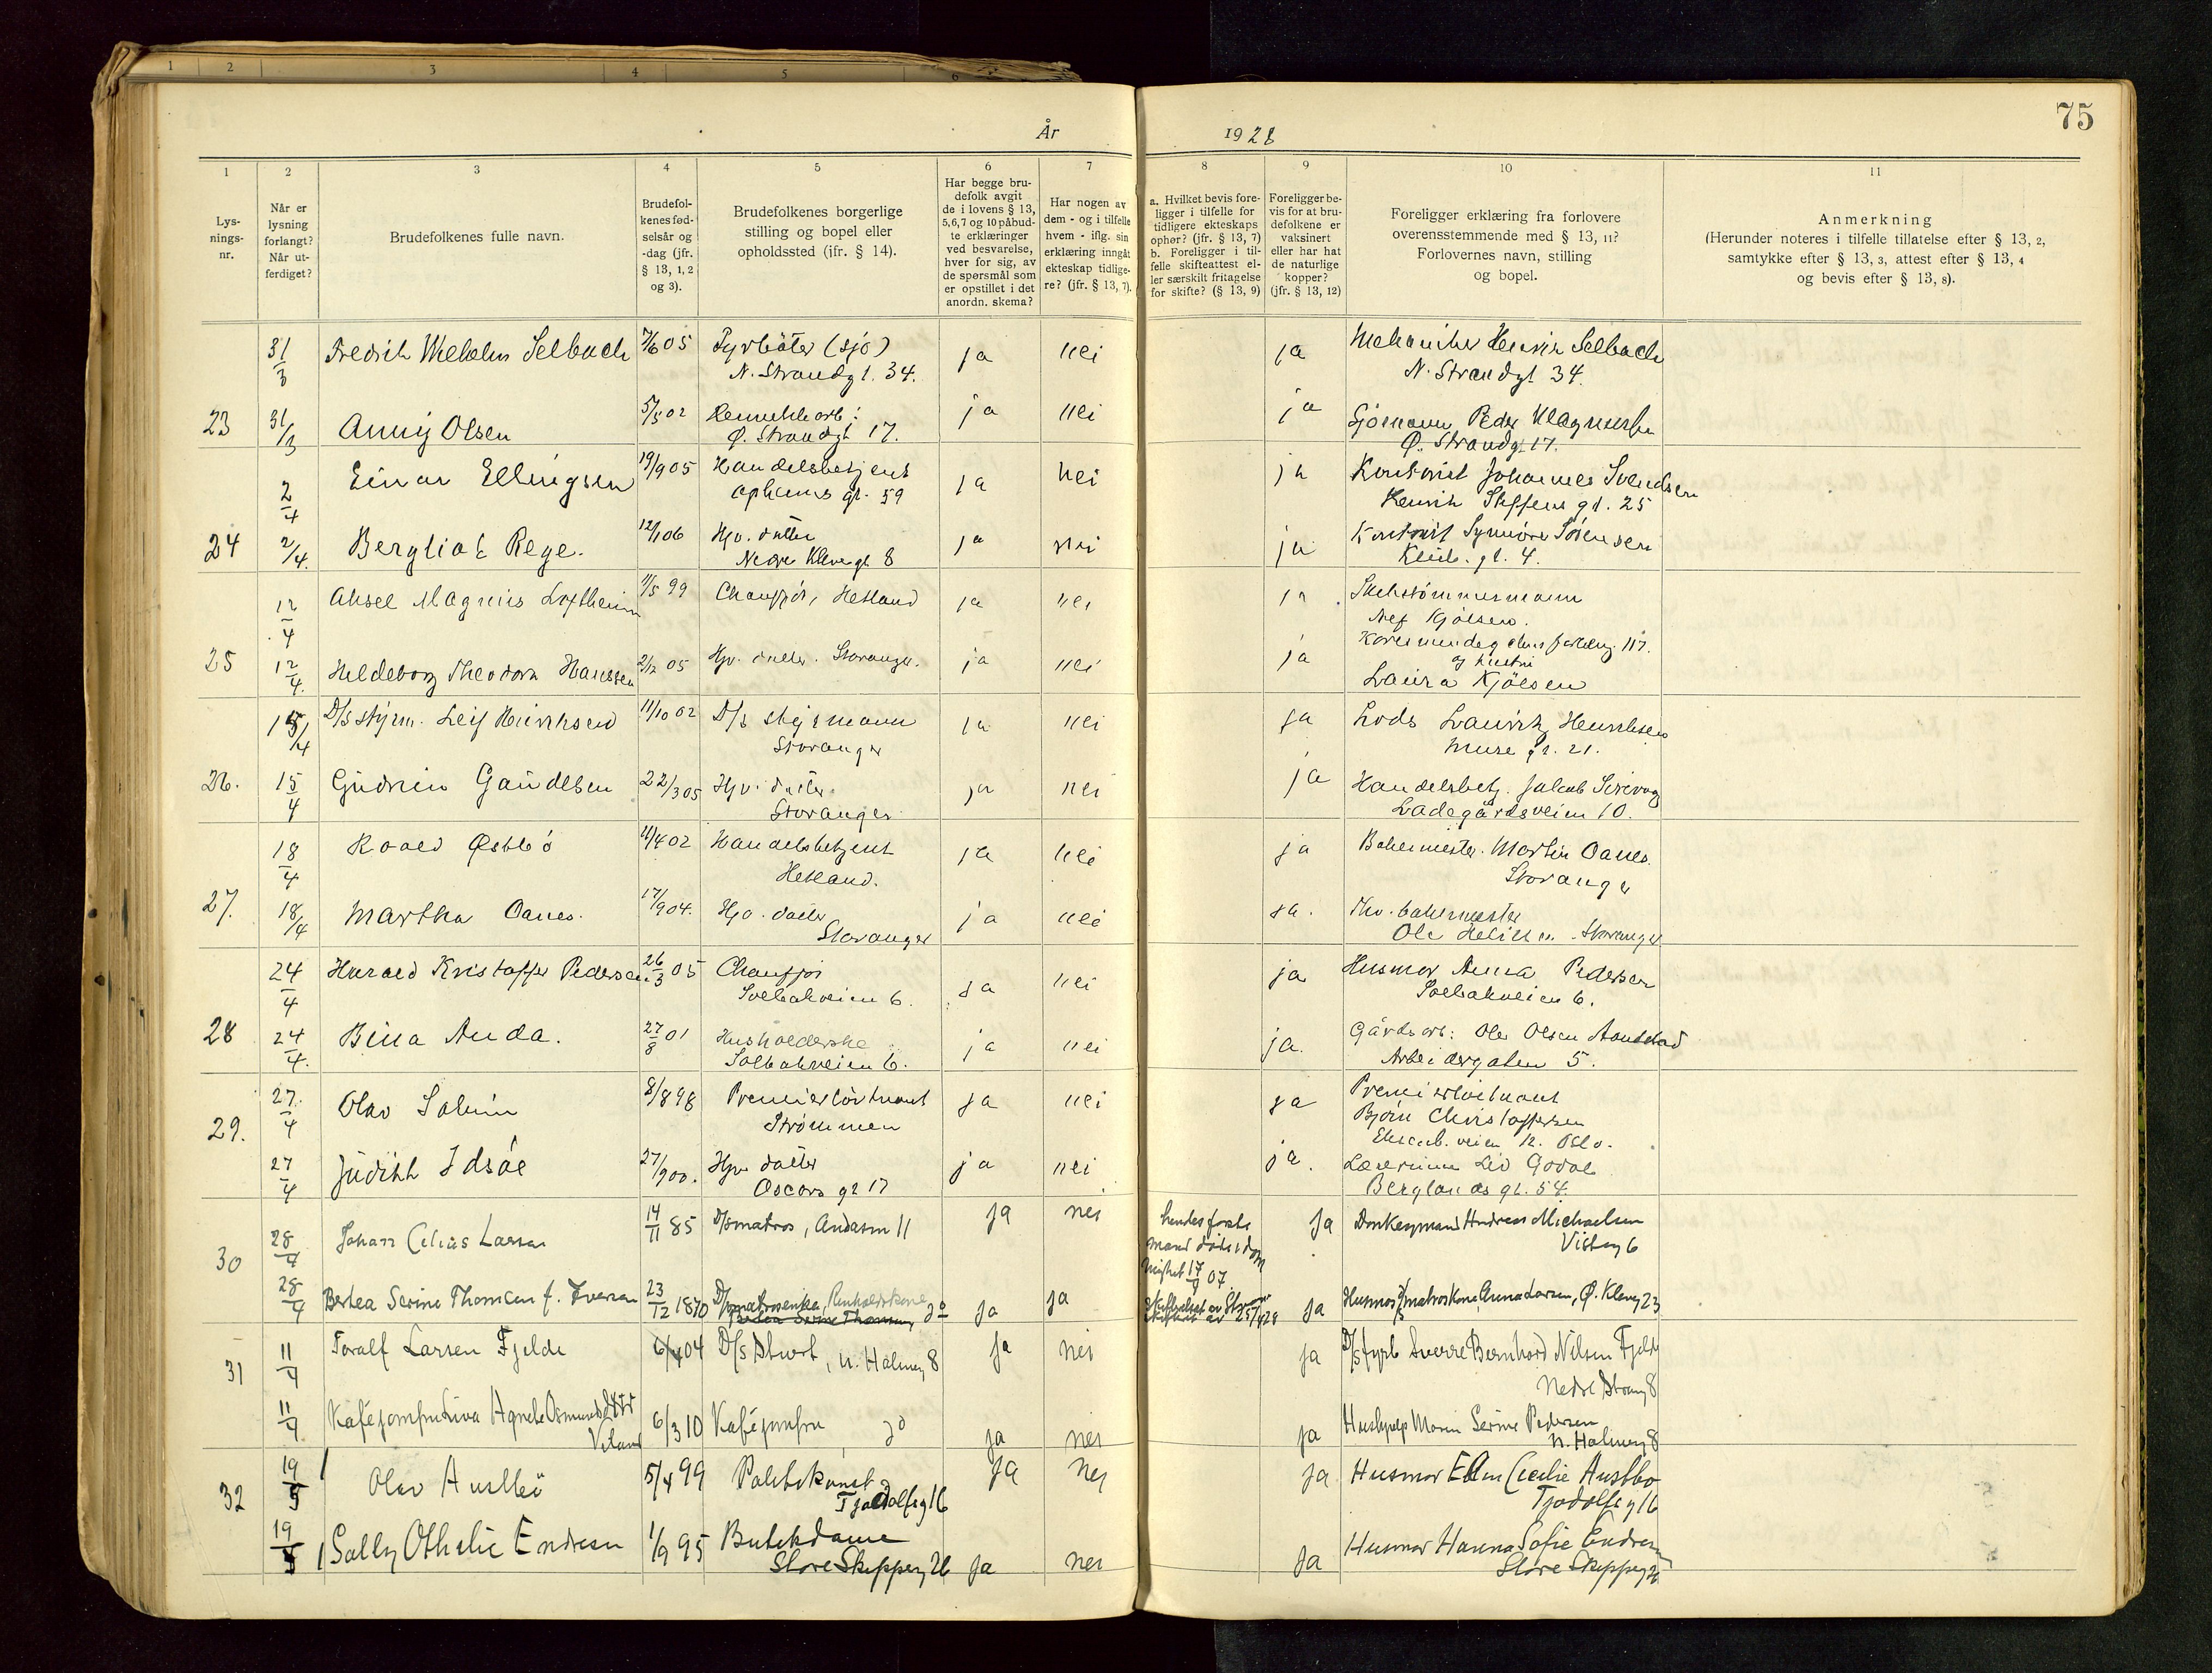 1 2 3 4 5 6
75
År 1928
1 2 3 4 5 6 7 8 9 10 11
Lys-
nings-
nr.
Når er
lysning
forlangt?
Når ut-
ferdiget?
Brudefolkenes fulle navn.
Brudefol-
kenes fød-
selsår og
-dag (jfr.
§ 13, 1, 2
og 3).
Brudefolkenes borgerlige
stilling og bopel eller
opholdssted (jfr. § 14).
Har begge bru-
defolk avgit
de i lovens § 13,
5,6,7 og 10 påbud-
te erklæringer
ved besvarelse,
hver for sig, av
de spørsmål som
er opstillet i det
anordn. skema?
Har nogen av
dem - og i tilfelle
hvem - iflg. sin
erklæring inngåt
ekteskap tidlige-
re? (jfr. § 13, 7).
a. Hvilket bevis fore-
ligger i tilfelle for
tidligere ekteskaps
ophør? (jfr. § 13, 7)
b. Foreligger i til-
felle skifteattest el-
ler særskilt fritagelse
for skifte? (§ 13, 9)
Foreligger be-
vis for at bru-
defolkene er
vaksinert
eller har hat
de naturlige
kopper?
(jfr. § 13, 12)
Foreligger erklæring fra forlovere
overensstemmende med § 13, 11?
Forlovernes navn, stilling
og bopel.
Anmerkning
(Herunder noteres i tilfelle tillatelse efter § 13, 2,
samtykke efter § 13, 3, attest efter § 13, 4
og bevis efter § 13, 8).
31/3 Fredrik Wilhelm Selbach 7/6 05 Fyrbøter (sjø) ja nei ja Mekaniker Henrik Selbach
N. Strandgt. 34. N. Strandgt 34.
23 31/3 Anny Olsen 5/5 02 Hermetikarb: ja nei ja Sjømann Peder Magnussen
Ø. Strandgt 17. Ø. Strandgt 17.
2/4 Einar Ellingsen 19/9 05 Handelsbetjent ja nei ja Kontorist Johannes Svendsen
gt. 59 Henrik Steffens gt. 25
24 2/4. Bergliot Rege. 12/1 06 Hjv. datter ja nei ja Kontorist Synnøve Sørensen
Nedre Klevegt 8 gt. 4.
12/4 Aksel Magnus Loftheim 11/5 99 Chauffør, Hetland ja nei ja Skibstømmermann
Kjölsen.
25 12/4. Hildeborg Theodora Hanssen 2/12 05 Hjv. datter. Stavanger. ja nei ja 117.
og hustru
Laura Kjölsen
15/4 D/s styrm. Leif Henriksen 11/10 02 D/s styrmann ja nei ja Lods Lauritz Henriksen
Stavanger gt. 21.
26. 15/4 Gudrun Gaudesen 22/3 05 Hjv. datter. ja nei ja Handelsbetj. Jakob
Stavanger Ladegårdsveien 10.
18/4 Roald Østbö 4/4 02 Handelsbetjent ja nei ja Bakermester. Martin Oanes.
Hetland. Stavanger
27. 18/4 Martha Oanes. 17/9 04. Hjv. datter ja nei ja. Fhv. bakermester
Stavanger Ole Stavanger
24/4 Harald Kristoffer Pedersen 26/3 05 Chauffør ja nei ja Husmor Anna Pedersen
Solbakveien 6. Solbakveien 6.
28 24/4. Bina Auda. 27/8 01 Husholderske ja nei ja. Gårdsarb: Ole Olsen
Solbakveien 6. Arbeidergaten 5.
29. 27/4 Olav Salvin 8/8 98 Premierløitnant ja nei ja Premierløitnant
Strømmen Bjørn Christoffersen
veien 12. Oslo.
27/4 Judith Idsøe 27/9 00. Hjv. datter ja nei ja. Lærerinne Liv Godal
Oscars gt 17 Berglands gt. 54.
30 28/4 Johan Celius Larsen 14/11 85 D/smatros, Andasm 11 ja nei hendes forste ja Donkeymand Andreas Michaelsen
mand døde i dom Visteg 6
kirket 17/9 07.
28/4 Bertea Serine Thomsen f. Iversen 23/12 1870 D/smatrosenke, Renholdskone do ja ja Skifteattest av 25/4 28 ja Husmor D/s matroskone Anna Larsen, Ø. Kleveg 23
Bertea Serine Thomsen
31 11/4 Toralf Larsen Fjelde 6/4 04 D/s Stuert, n. Holmeg 8 ja nei ja D/s fyrb Sverre Bernhard Nilsen Fjelde
Nedre Strandg 8
11/4 Kaféjomfru Liva Agnete Osmundsdttr 6/3 10 Kaféjomfru, do ja nei ja Hushjelp Maren Serine Pedersen
n. Holmeg 8
32 19/5 Olav Austbö 5/4 99 Politikonst. ja nei ja Husmor Elen Cecilie Austbø
Tjodolfsg 16 Tjodolfsg 16
19/5 Sally Othelie Endresen 1/9 95 Butikdame ja nei ja Husmor Hanna Sofie Endresen
Store Skipperg 26 Store Skipperg 26